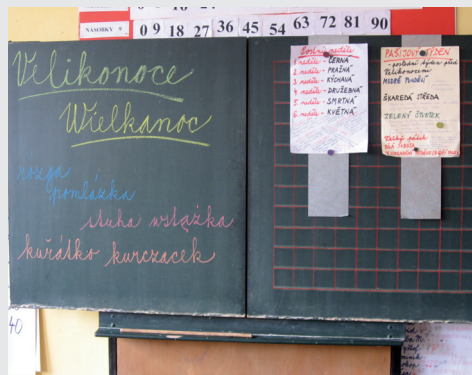 NÁSOBKY 9 0 9 18 27 36 45 54 63 72 81 90
Velikonoce
Wielkanoc
rózga
pomlázka
stuha wstążka
kuřátko kurczaczek
Postní neděle
1 neděle - ČERNÁ
2 neděle - PRAŽNÁ
3 neděle - KÝCHAVÁ
4 neděle - DRUŽEBNÁ
5 neděle - SMRTNÁ
6 neděle - KVĚTNÁ
PAŠIJOVÝ TÝDEN
- poslední týden před
Velikonocemi
MODRÉ PONDĚLÍ
ŠKAREDÁ STŘEDA
ZELENÝ ČTVRTEK
Velký pátek
Bílá sobota
40